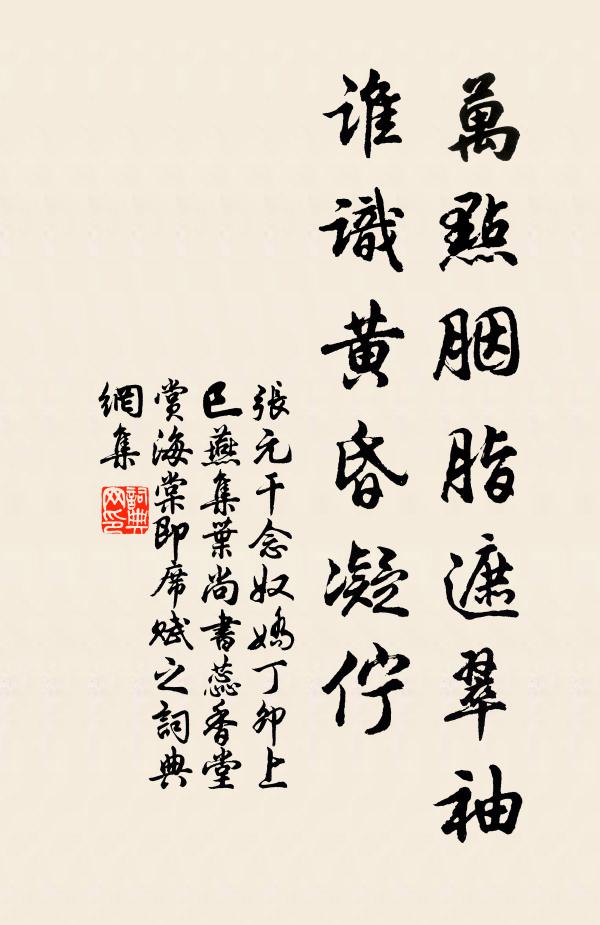 萬點胭脂遮翠袖
誰識黃昏凝佇
張元干念奴嬌丁卯上
巳燕集葉尚書蕊香堂
賞海棠即席賦之詞典
網集
詞典
网印